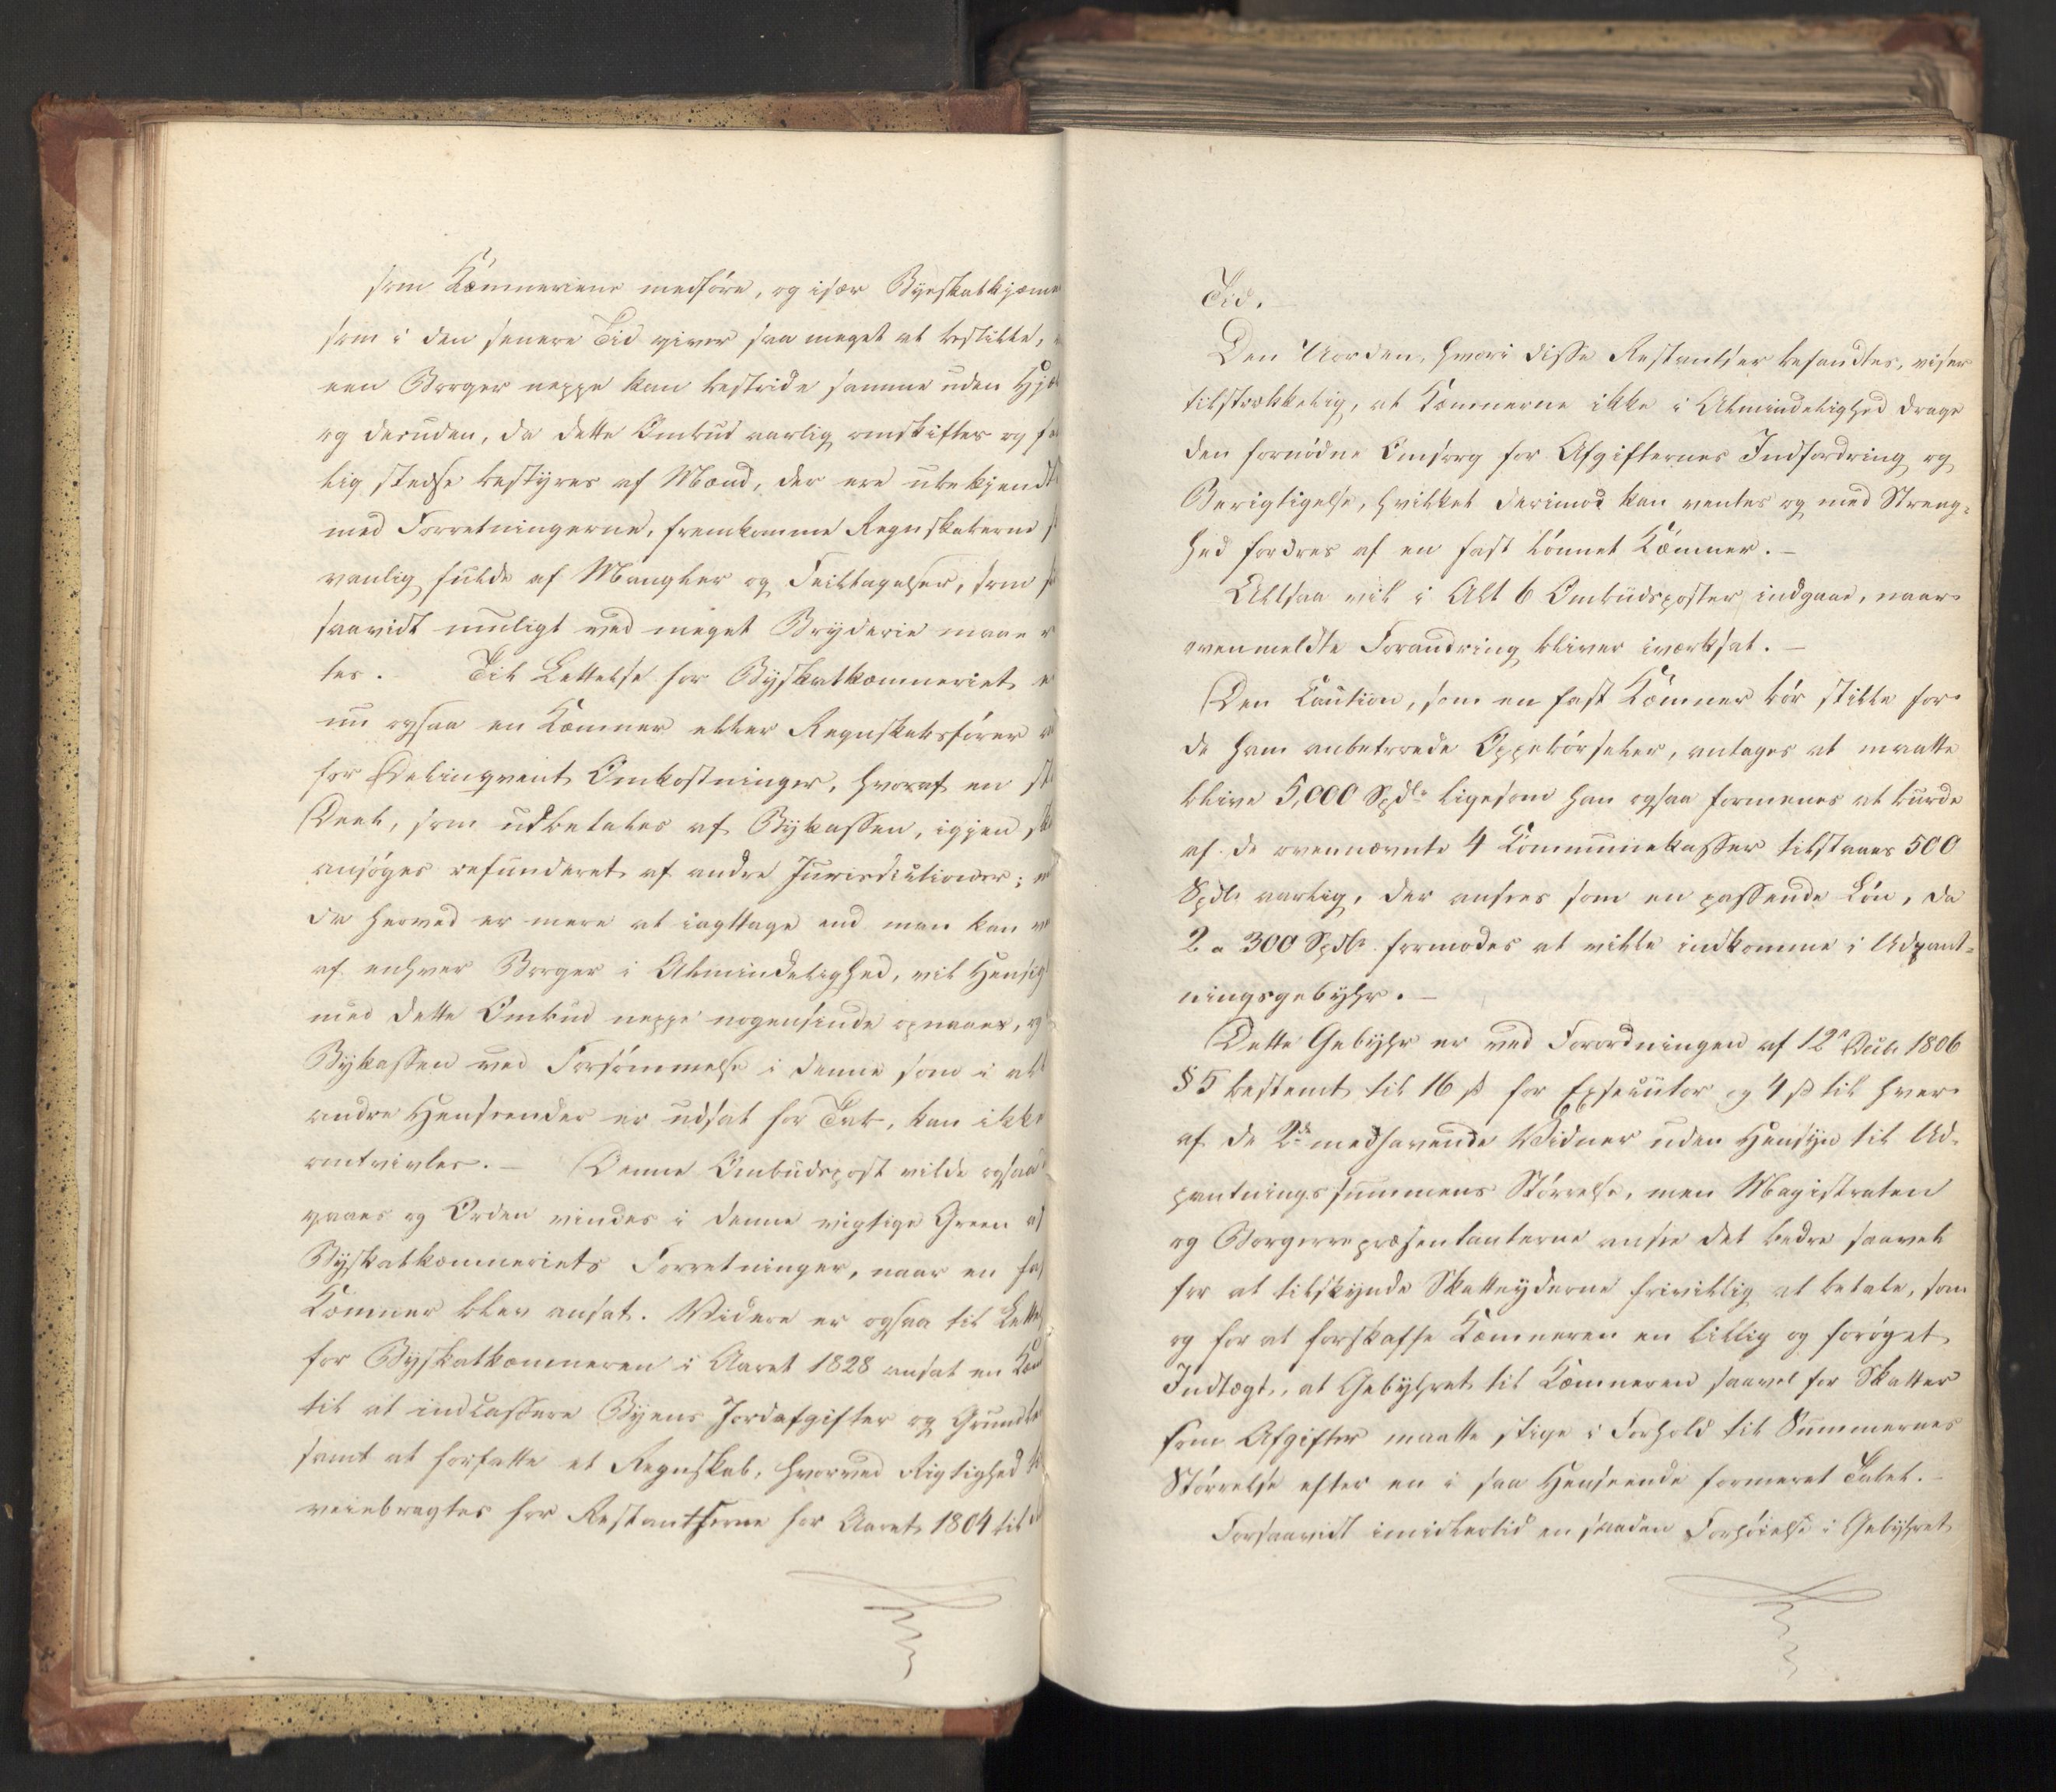 som Kæmnerierne medføre, og især Byeskatkjæmne
som i den senere Tid giver saa meget at bestille,
een Borger neppe kan bestride samme uden Hjæl
og desuden, da dette Ombud aarlig omskiftes og
lig stedse bestyres af Mænd, der ere ubekjendt
med Forretningerne, fremkomme Regnskaberne
vanlig fulde af Mangler og Feiltagelser, som
saavidt muligt ved meget Bryderie maae
tes. Til Lettelse for Byskatkæmneriet
nu ogsaa en Kæmner eller Regnskabsfører
for Delinqvent Omkostninger, hvoraf en
Deel, som udbetales af Bykassen, igjen
ansøges refunderet af andre Jurisdictioner;
da herved er mere at iagttage end man kan
af enhver Borger i Almindelighed, vil Hensig
med dette Ombud neppe nogensinde opnaaes, og
Bykassen ved Forsømmelse i denne som i alt
andre Henseender er udsat for Tab, kan ikke
omtvivles. – Denne Ombudspost vilde ogsaa
gaaes og Orden vindes i denne vigtige Green af
Byskatkæmneriets Forretninger, naar en fas
Kæmner blev ansat. Videre er ogsaa til Lette
for Byskatkæmneren i Aaret 1828 ansat en Kæm
til at indcassere Byens Jordafgifter og Grundle
samt at forfatte et Regnskab, hvorved Rigtighed
veiebragtes for Restantserne for Aaret 1804 til
Tid.
Den Uorden, hvori disse Restantser befandtes, viser
tilstrækkelig, at Kæmnerne ikke i Almindelighed drage
den fornødne Omsorg for Afgifternes Indfordring og
Berigtigelse, hvilket derimod kan ventes og med Streng-
hed fordres af en fast lønnet Kæmner. –
Altsaa vil i Alt 6 Ombudsposter indgaae, naar
ovenmeldte Forandring bliver iværksat. –
Den Caution, som en fast Kæmner bør stille for
de ham anbetroede Oppebørseler, antages at maatte
blive 5,000 Spdlr ligesom han ogsaa formenes at burde
af de ovennævnte 4 Communekasser tilstaaes 500
Spdlr aarlig, der ansees som en passende Løn, da
2 a 300 Spdlr formodes at ville indkomme i Udpant-
ningsgebyhr. –
Dette Gebyhr er ved Forordningen af 12te Decbr 1806
§ 5 bestemt til 16 ß for Exsecutor og 4 ß til hver
af de 2de medhavende Vidner uden Hensyn til Ud-
pantningssummens Størrelse, men Magistraten
og Borgerrepræsentanterne ansee det bedre saavel
for at tilskynde Skatteyderne frivillig at betale, som
og for at forskaffe Kæmneren en billig og forøget
Indtægt, at Gebyhret til Kæmneren saavel for Skatter
som Afgifter maatte stige i Forhold til Summernes
Størrelse efter en i saa Henseende formeret Tabel. –
Forsaavidt imidlertid en saadan Forhøielse i Gebyhret